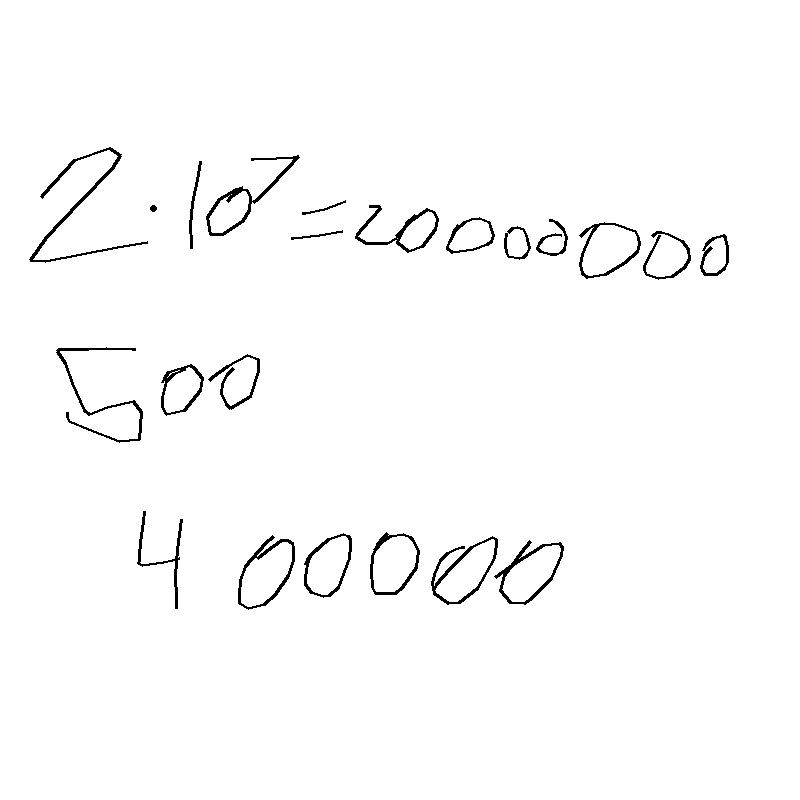 2·10⁷=20000000
500
400000